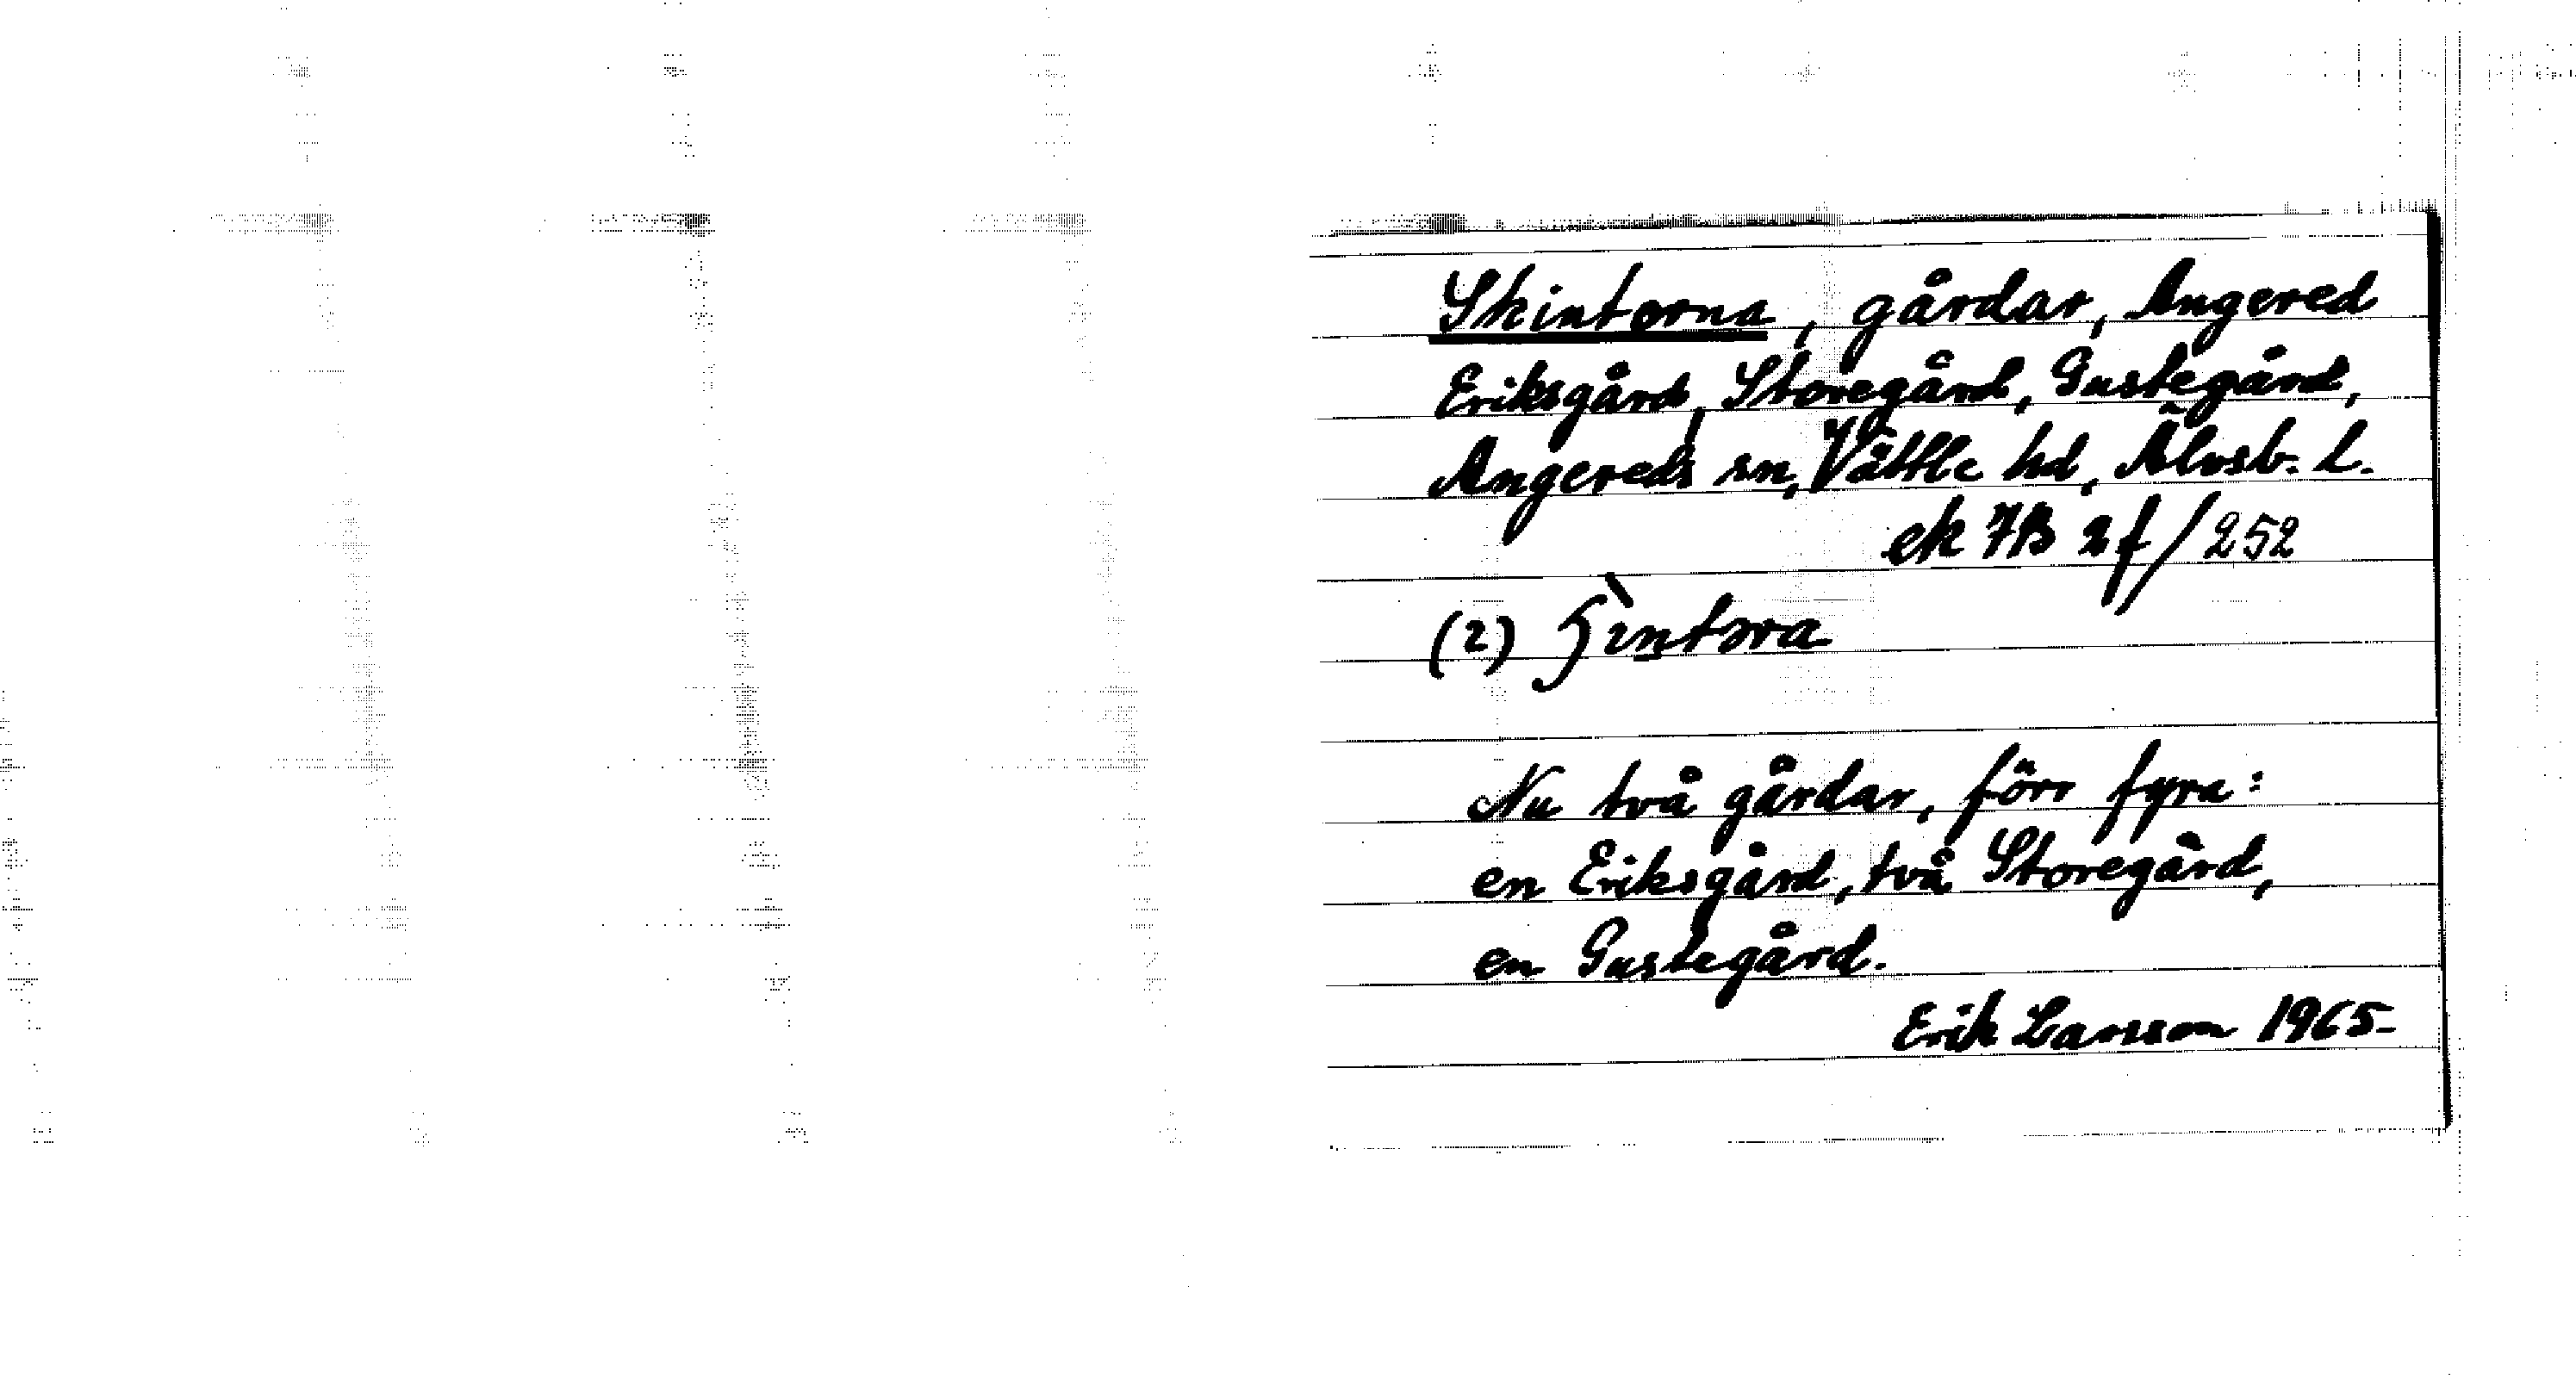 Skintorna, gårdar, Angered
Eriksgård, Storegård, Gustegård,
Angereds sn, Vättle hd, Älvsb. L.
ek 7B 2f/252
(2) ʃìntəra
Nu två gårdar, förr fyra:
en Eriksgård, två Storegård,
en Gustegård.
Erik Larsson 1965-